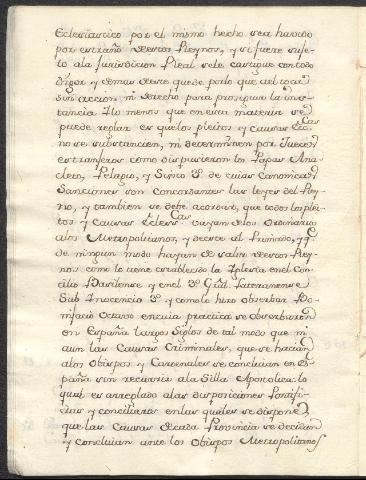 Eclesiastico por el mismo hecho sea havido
por estraño destos Reynos, y si fuere suje-
to ala Jurisdicion Real sele castigue con todo
rigor y demas desto quede por lo que al toca
sin accion ni derecho para proseguir la ins-
tancia Ylo menos que en esta materia se
puede reglar es quelos pleitos y Causas Ecc.cas
no se substancien, ni determinen por Jueces
estrangeros como dispusieron los Papas Ana-
cleto, Pelagio, y Sixto 3º de cuias canonicas
Sanciones son concordantes las leyes del Rey-
no, y tambien se debe acordar, que todos los plei-
tos y Causas Ecles.cas vayan delos Ordinarios
alos Metropolitanos, y deeste al Primado, y q.e
de ningun modo hayan de salir destos Rey-
nos como lo tiene establecido la Yglesia enel Con-
cilio Basilense y enel 3º Gral. Lateranense
Sub Inocencio 3º y como lo hizo observar Bo-
nifacio Octavo en cuia practica se observaron
en España largos Siglos de tal modo que ni
aun las Causas Criminales, que se hacian
alos Obispos y Cardenales se concluian en es-
paña sin recurrir ala Silla Apostolica: lo
qual es arreglado alas disposiciones Pontifi-
cias y conciliares en las quales se dispone,
que las Causas de cada Provincia se decidan
y concluian ante los Obispos Metropolitanos